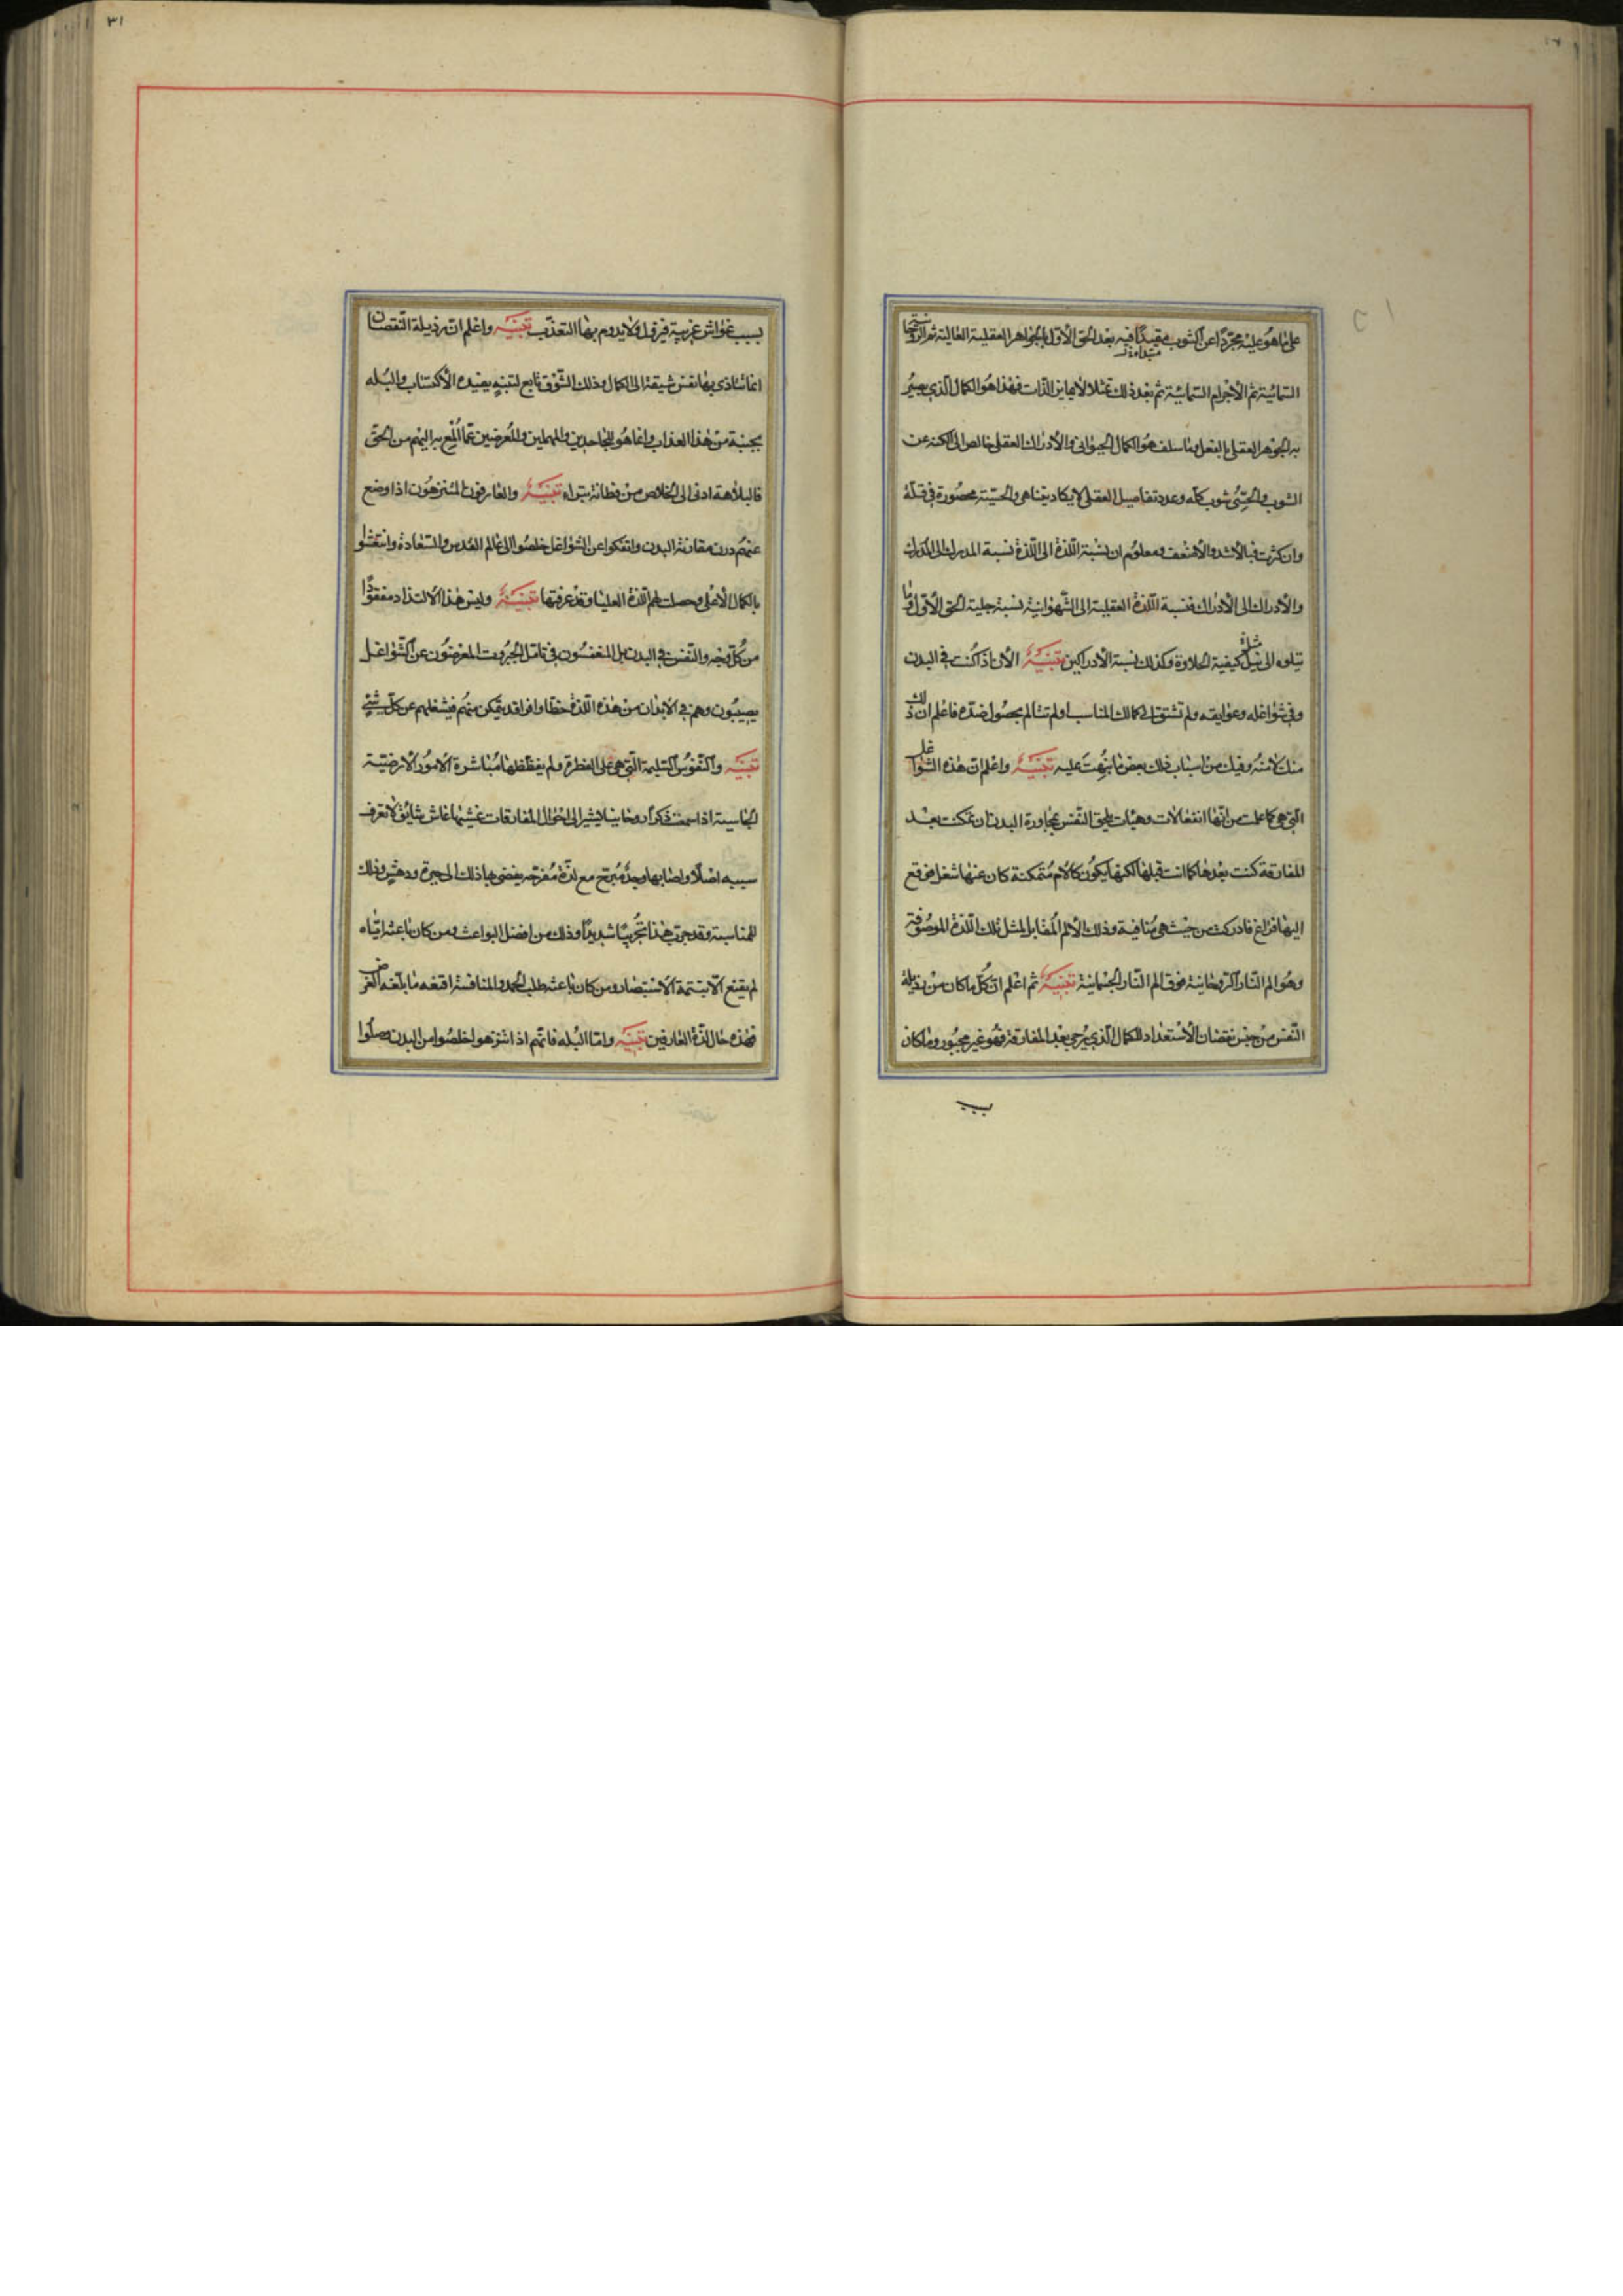 على ما هو عليه مجردا عن الشوب مبتدأ فيه بعد الحق الأول بالجواهر العقلية العالية ثم الروحانية
السمائية ثم الأجرام السمائية ثم بعد ذلك تمثلا لا يمايز الذات فهذا هو الكمال الذي يصير
به الجوهر العقلي بالفعل وما سلف هو الكمال الحيواني والأدراك العقلي خالص إلى الكنه عن
الشوب والحسي شوب كله وعدد تفاصيل العقلي لا يكاد يتناهى والحسية محصورة في قلة
وان كثرت فبالأشد والأضعف ومعلوم ان نسبة اللذة الى اللذة نسبة المدرك الى المدرك
والأدراك الى الأدراك فنسبة اللذة العقلية الى الشهوانية نسبة جلية الحق الأول وما
يتلوه الى نيل كيفية الحلاوة وكذلك نسبة الأدراكين تنبيه الآن اذا كنت في البدن
وفي شواغله وعوايقه ولم تشتق الى كمالك المناسب او لم تتالم بحصول ضده فاعلم ان ذلك
منك لا منه وفيك من اسباب ذلك بعض ما نبهت عليه تنبيه واعلم ان هذه الشواغل
التي هي كما علمت من انها انفعالات وهيئات تلحق النفس بمجاورة البدن ان تمكنت بعد
المفارقة كنت بعدها كما انت قبلها لكنها يكون كآلام متمكنة كان عنها شغل فوقع
اليها فراغ فادركت من حيث هي منافية وذلك الألم المقابل لمثل تلك اللذة الموصوفة
وهو الم النار الروحانية فوق الم النار الجسمانية تنبيه ثم اعلم ان كل ما كان من رذيلة
النفس من جنس نقصان الأستعداد للكمال الذي يرجى بعد المفارقة فهو غير مجبور وما كان
بسبب
٣١
بسبب غواش غريبة فيزول ولا يدوم بها التعذب تنبيه واعلم ان رذيلة النقصان
انما تتاذى بها نفس شيقة الى الكمال وذلك الشوق تابع لتنبه يفيده الأكتساب والبله
بجنبة من هذا العذاب وانما هو للجاحدين والمهملين والمعرضين عما المع به اليهم من الحق
فالبلاهة ادنى الى الخلاص من فطانة بتراء تنبيه والعارفون المتنزهون اذا وضع
عنهم درن مقارنة البدن وانفكوا عن الشواغل خلصوا الى عالم القدس والسعادة وانتقشوا
بالكمال الأعلى وحصلت لهم اللذة العليا وقد عرفتها تنبيه وليس هذا الألتذاذ مفقودا
من كل وجه والنفس في البدن بل المنغمسون في تامل الجبروت المعرضون عن الشواغل
يصيبون وهم في الأبدان من هذه اللذة حظا وافرا قد يتمكن منهم فيشغلهم عن كل شيء
تنبيه والنفوس السليمة التي هي على الفطرة ولم يفظظها مباشرة الأمور الأرضية
الجاسية اذا سمعت ذكرا روحانيا يشير الى احوال المفارقات غشيها غاش شائق لا تعرف
سببه اصلا واصابها وجد مبرح مع لذة مفرحة يفضي بها ذلك الى حيرة ودهش وذلك
للمناسبة وقد جرب هذا تجريبا شديدا وذلك من افضل البواعث ومن كان باعثه اياه
لم يقنع الا بتتمة الأستبصار ومن كان باعثه طلب الحمد والمنافسة اقنعه ما بلغه الغرض
فهذه حال لذة العارفين تنبيه واما البله فانهم اذا تنزهوا خلصوا من البدن وصلوا